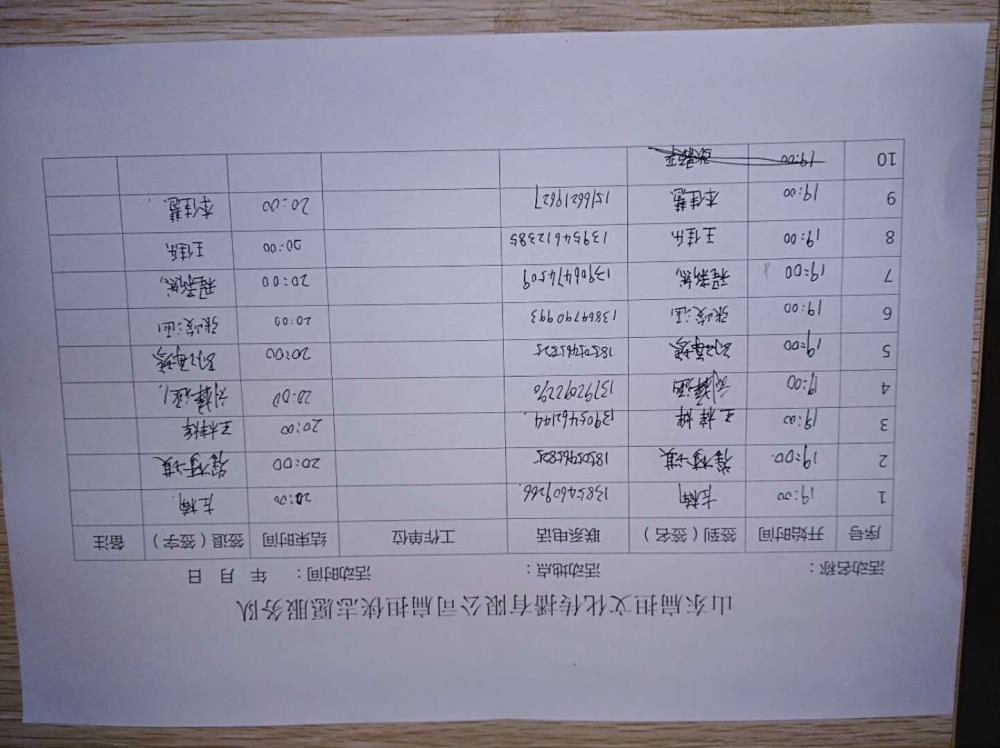 山东扁担文化传播有限公司扁担侠志愿服务队
活动名称： 活动地点： 活动时间： 年 月 日
序号 开始时间 签到（签名） 联系电话 工作单位 结束时间 签退（签字） 备注
1 19:00 左楠 13854609266. 20:00 左楠
2 19:00. 18505465825 20:00
3 19:00 王梓烨 13905462144. 20:00 王梓烨
4 19:00 13792092296 20:00
5 19:00 18505465825 20:00
6 19:00 张峻涵 13864790993 20:00 张峻涵
7 19:00 程新然 13906474509 20:00 程新然
8 19:00 王佳乐 13954612385 20:00 王佳乐
9 19:00 李佳慧 15166219627 20:00 李佳慧
10 19:00